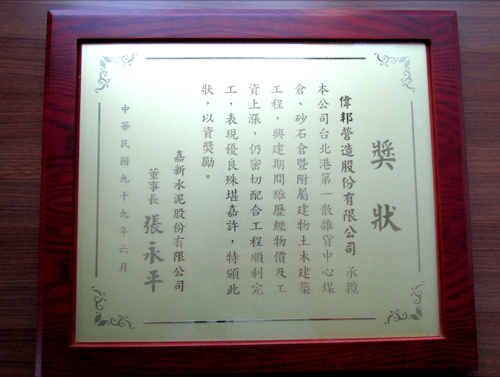 獎狀
偉邦營造股份有限公司 承攬
本公司台北港第一散雜貨中心煤
倉、砂石倉暨附屬建物土木建築
工程，興建期間雖歷經物價及工
資上漲，仍密切配合工程順利完
工，表現優良殊堪嘉許，特頒此
狀，以資獎勵。
嘉新水泥股份有限公司
董事長 張永平
中華民國九十九年六月